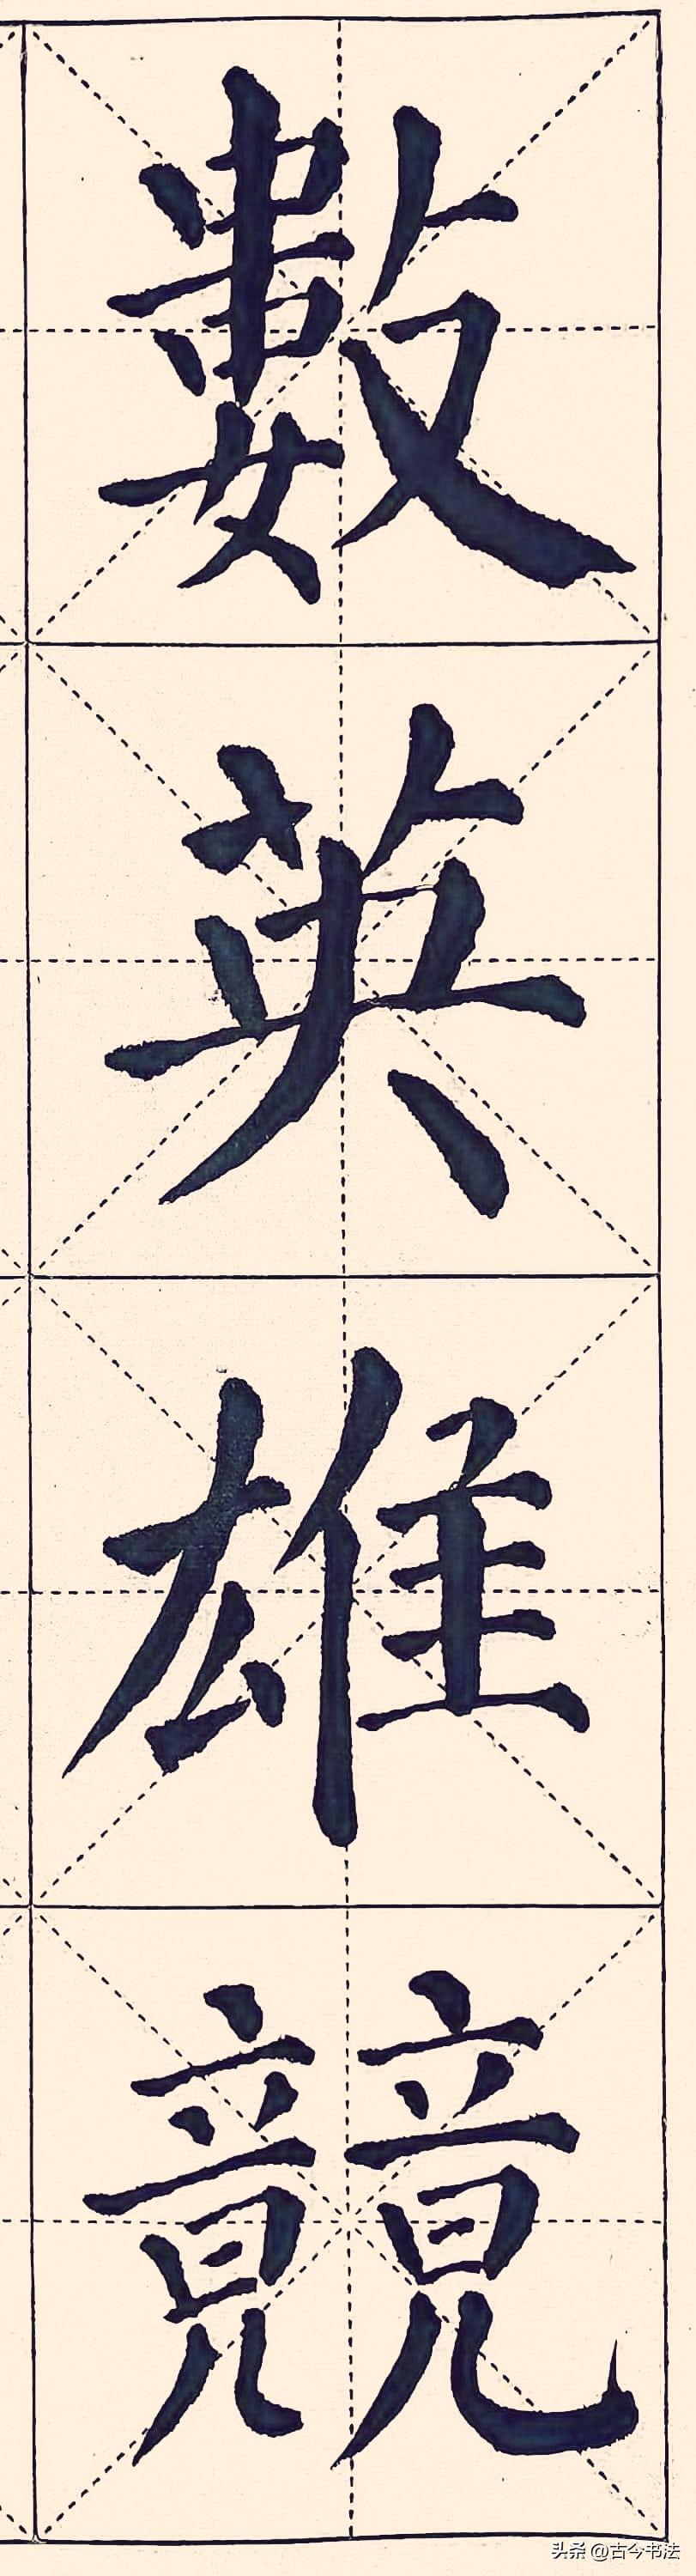 數英雄競
头条 @古今书法